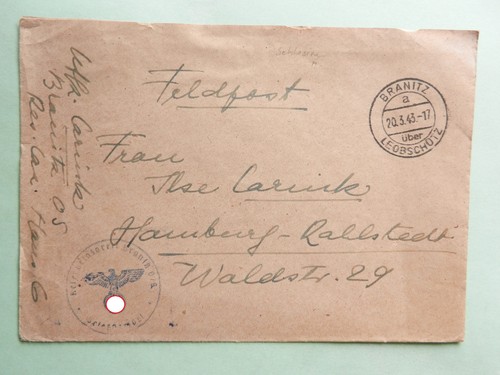 Schlesien
Feldpost
BRANITZ
a
20.3.43.-17
über
LEOBSCHÜTZ
Frau
Ilse Carink
Hamburg-Rallstedt
Waldstr. 29
Uffz. Carink
Branitz OS
Res. Laz. Haus 6